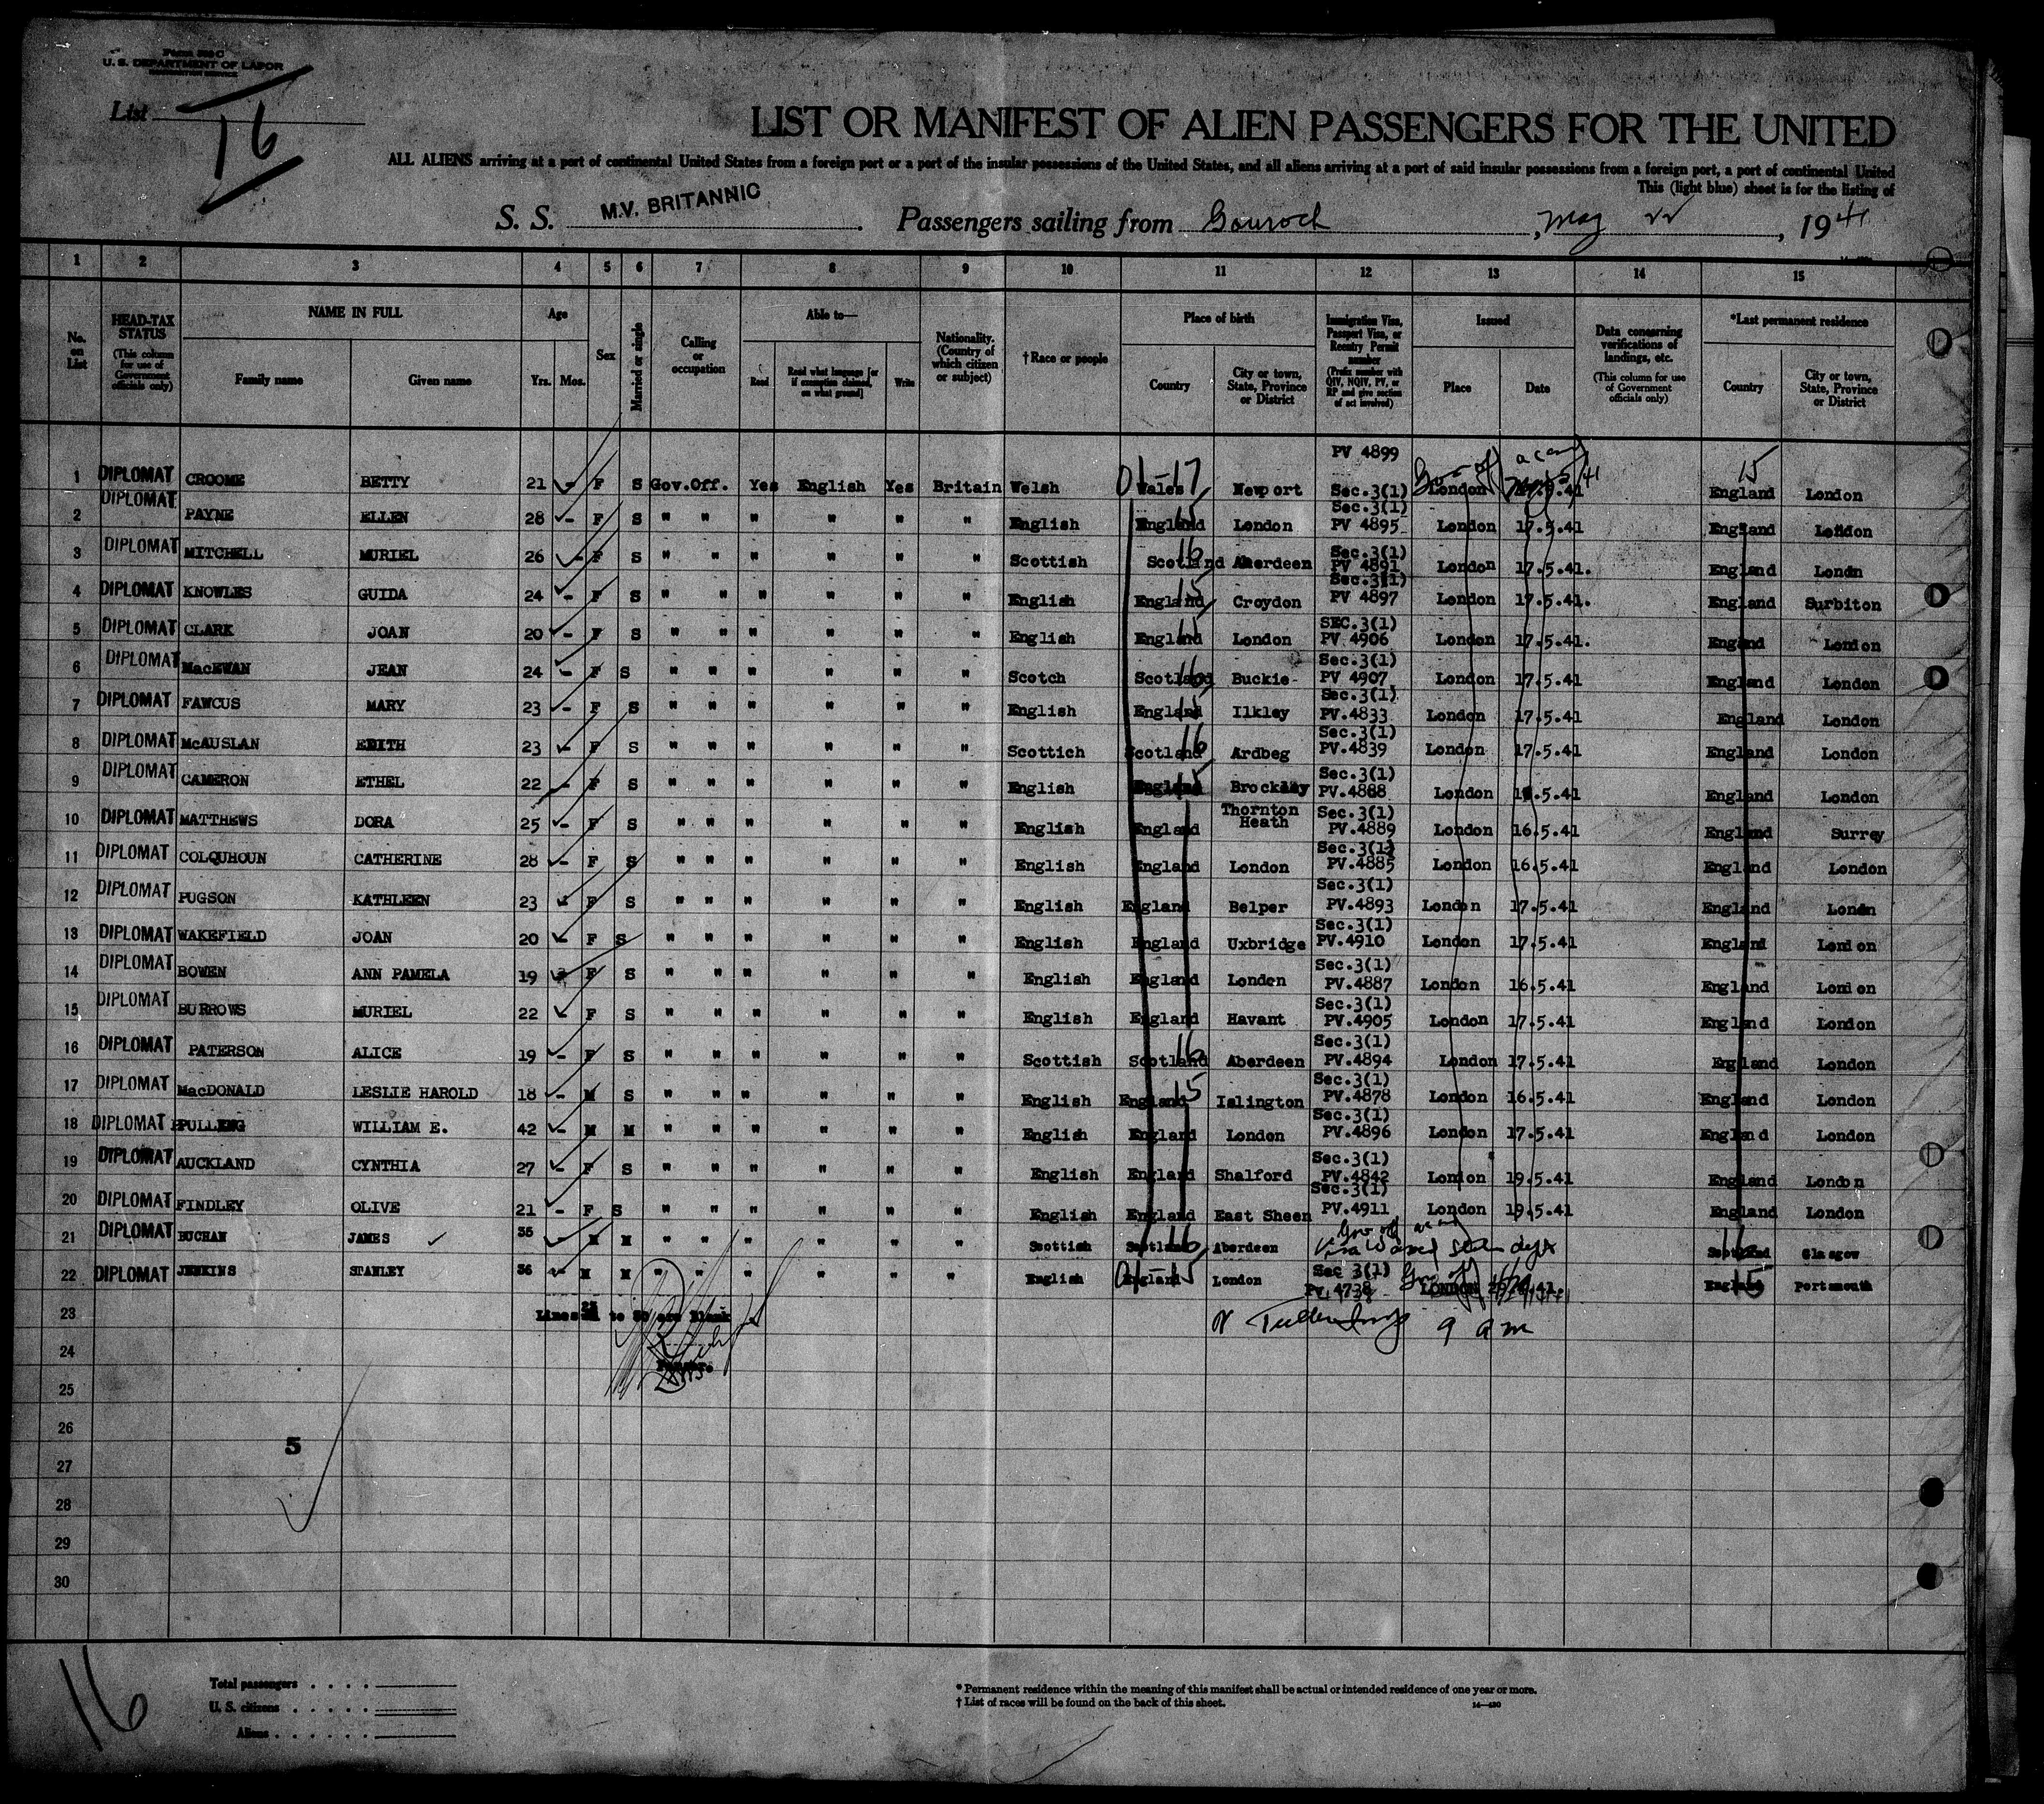 Form 500 C
U. S. DEPARTMENT OF LABOR
IMMIGRATION SERVICE
List 16
LIST OR MANIFEST OF ALIEN PASSENGERS FOR THE UNITED
ALL ALIENS arriving at a port of continental United States from a foreign port or a port of the insular possessions of the United States, and all aliens arriving at a port of said insular possessions from a foreign port, a port of continental United
This (light blue) sheet is for the listing of
S. S. M.V. BRITANNIC. Passengers sailing from Gourock, May 22, 1941
1 2 3 4 5 6 7 8 9 10 11 12 13 14 15
No. on List
HEAD-TAX STATUS (This column for use of Government officials only)
NAME IN FULL Family name Given name
Age Yrs. Mos.
Sex
Married or single
Calling or occupation
Able to— Read Read what language [or if exemption claimed, on what ground] Write
Nationality. (Country of which citizen or subject)
†Race or people
Place of birth Country City or town, State, Province or District
Immigration Visa, Passport Visa, or Reentry Permit number (Prefix number with QIV, NQIV, PV, or RP and give section of act involved)
Issued Place Date
Data concerning verifications of landings, etc. (This column for use of Government officials only)
*Last permanent residence Country City or town, State, Province or District
1 DIPLOMAT CROOME BETTY 21 - F S Gov.Off. Yes English Yes Britain Welsh 01-17 Wales Newport PV 4899 Sec.3(1) London 15 England London
2 DIPLOMAT PAYNE ELLEN 28 - F S " " " " " " English England 15 London Sec.3(1) PV 4895 London 17.5.41 England London
3 DIPLOMAT MITCHELL MURIEL 26 - F S " " " " " " Scottish Scotland 16 Aberdeen Sec.3(1) PV 4891 London 17.5.41. England Londn
4 DIPLOMAT KNOWLES GUIDA 24 - F S " " " " " " English England 15 Croydon Sec.3(1) PV 4897 London 17.5.41. England Surbiton
5 DIPLOMAT CLARK JOAN 20 - F S " " " " " " English England London SEC.3(1) PV 4906 London 17.5.41. England London
6 DIPLOMAT MacEWAN JEAN 24 - F S " " " " " " Scotch Scotland 16 Buckie- Sec.3(1) PV 4907 London 17.5.41 England London
7 DIPLOMAT FAWCUS MARY 23 - F S " " " " " " English England 15 Ilkley Sec.3(1) PV.4833 London 17.5.41 England London
8 DIPLOMAT McAUSLAN EDITH 23 - F S " " " " " " Scottich Scotland 16 Ardbeg Sec.3(1) PV.4839 London 17.5.41 England London
9 DIPLOMAT CAMERON ETHEL 22 - F S " " " " " " English England 15 Brockley Sec.3(1) PV.4888 London England London
10 DIPLOMAT MATTHEWS DORA 25 - F S " " " " " " English England Thornton Heath Sec.3(1) PV.4889 London 16.5.41 England Surrey
11 DIPLOMAT COLQUHOUN CATHERINE 28 - F S " " " " " " English England London Sec.3(1) PV.4885 London 16.5.41 England London
12 DIPLOMAT PUGSON KATHLEEN 23 F S " " " " " " English England Belper Sec.3(1) PV.4893 London 17.5.41 England Londn
13 DIPLOMAT WAKEFIELD JOAN 20 - F S " " " " " " English England Uxbridge Sec.3(1) PV.4910 London 17.5.41 England London
14 DIPLOMAT BOWEN ANN PAMELA 19 F S " " " " " " English England London Sec.3(1) PV.4887 London 16.5.41 England London
15 DIPLOMAT BURROWS MURIEL 22 - F S " " " " " " English England Havant Sec.3(1) PV.4905 London 17.5.41 England London
16 DIPLOMAT PATERSON ALICE 19 - F S " " " " " " Scottish Scotland 16 Aberdeen Sec.3(1) PV.4894 London 17.5.41 England London
17 DIPLOMAT MacDONALD LESLIE HAROLD 18 - M S " " " " " " English England 15 Islington Sec.3(1) PV.4878 London 16.5.41 England London
18 DIPLOMAT PULLING WILLIAM E. 42 - M M " " " " " " English England London Sec.3(1) PV.4896 London 17.5.41 England London
19 DIPLOMAT AUCKLAND CYNTHIA 27 - F S " " " " " " English England Shalford Sec.3(1) PV.4842 London 19.5.41 England London
20 DIPLOMAT FINDLEY OLIVE 21 - F S " " " " " " English England East Sheen Sec.3(1) PV.4911 London 19.5.41 England London
21 DIPLOMAT BUCHAN JAMES 35 M M " " " " " " Scottish Scotland 16 Aberdeen Visa Waived State dept Scotland 16 Glasgow
22 DIPLOMAT JENKINS STANLEY 36 - M M " " " " " " English England 01-15 London Sec 3(1) PV.4738 LONDON England 15 Portsmouth
23 Lines to 30 are Blank
9 am
24 Purser.
25
26
5
27
28
29
30
16
Total passengers . . . .
U. S. citizens . . . . .
Aliens . . . . . . .
* Permanent residence within the meaning of this manifest shall be actual or intended residence of one year or more.
† List of races will be found on the back of this sheet.
14—480